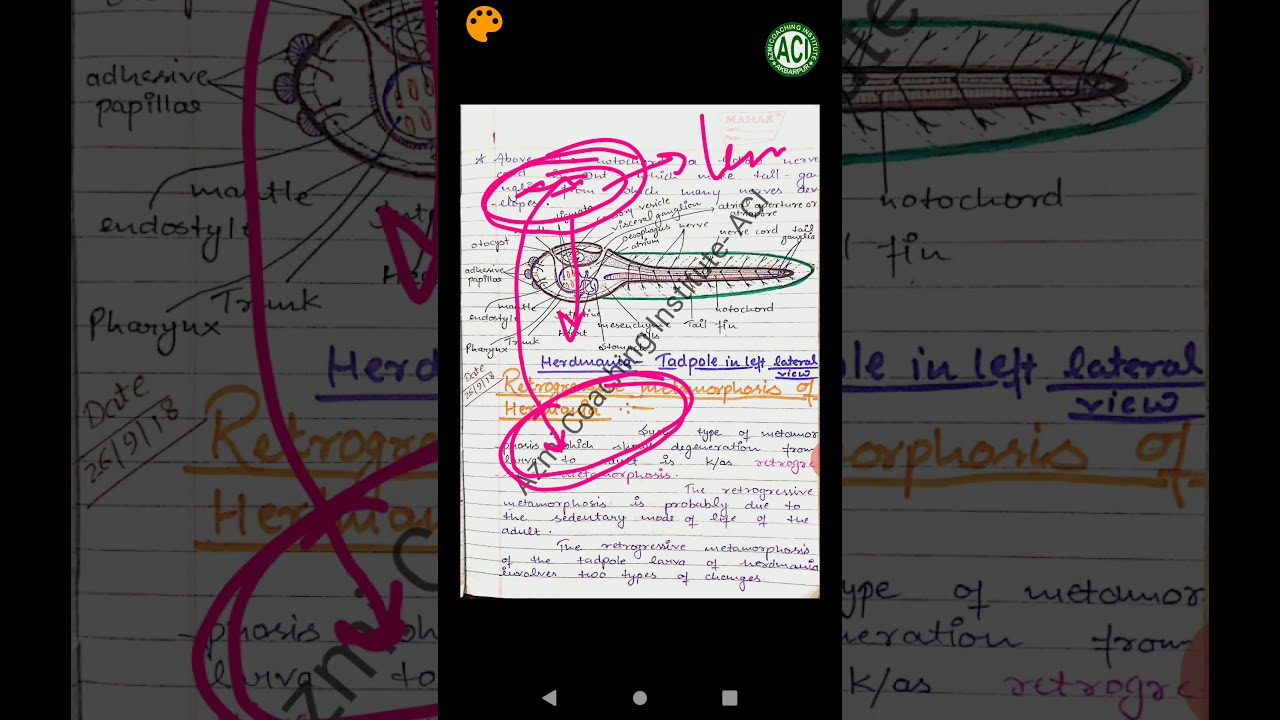 AZMI COACHING INSTITUTE
ACI
AKBARPUR
MAHAR
* Above notochord a hollow nerve
which make tail-gan
from which many nerves dev
-elopes.
sensory vesicle
visceral ganglion
atrial aperture or
atriopore
oesophagus
nerve
nerve cord
tail
ganglia
atrium
otocyst
adhesive
papillae
mantle
endostyle
notochord
mesenchyme
cells
Tail fin
Heart
Trunk
Stomach
Pharynx
Herdmania Tadpole in left lateral
view
Date
26/9/18
Retrogressive metamorphosis of
Herdmania :-
type of metamor
-phosis which show degeneration from
larva to adult is k/as retrogre
metamorphosis.
The retrogressive
metamorphosis is probably due to
the sedentary mode of life of the
adult.
The retrogressive metamorphosis
of the tadpole larva of herdmania
involves two types of changes
Azmi Coaching Institute- ACI
adhesive
papillae
mantle
endostyle
Trunk
Pharynx
Date
26/9/18
notochord
fin
le in left lateral
view
orphosis of
ype of metamor
neration from
k/as retrogre
-phosis
larva to